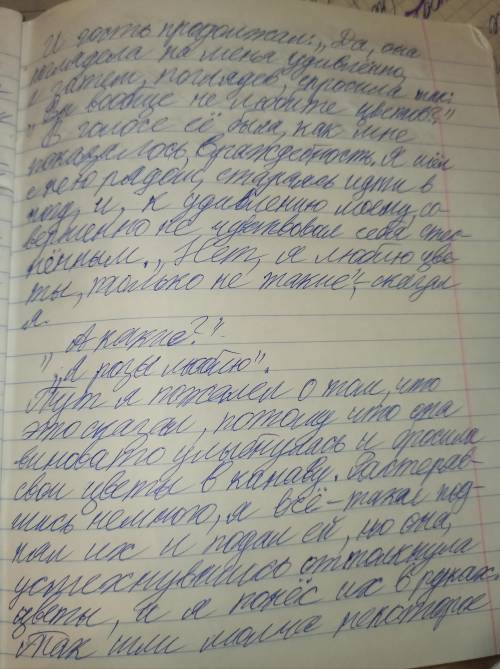 И гость продолжал: „Да, она
поглядела на меня удивлённо,
а затем, поглядев, спросила так:
„Вы вообще не любите цветов?"
В голосе её была, как мне
показалось, враждебность. Я шёл
с нею рядом, стараясь идти в
ногу, и, к удивлению моему, со-
вершенно не чувствовал себя стес-
нённым. „Нет, я люблю цве-
ты, только не такие", - сказал
я.
„А какие?"
„Я розы люблю".
Тут я пожалел о том, что
это сказал, потому что она
виновато улыбнулась и бросила
свои цветы в канаву. Растеряв-
шись немного, я всё-таки под-
нял их и подал ей, но она,
усмехнувшись, оттолкнула
цветы, и я понёс их в руках.
Так шли молча некоторое